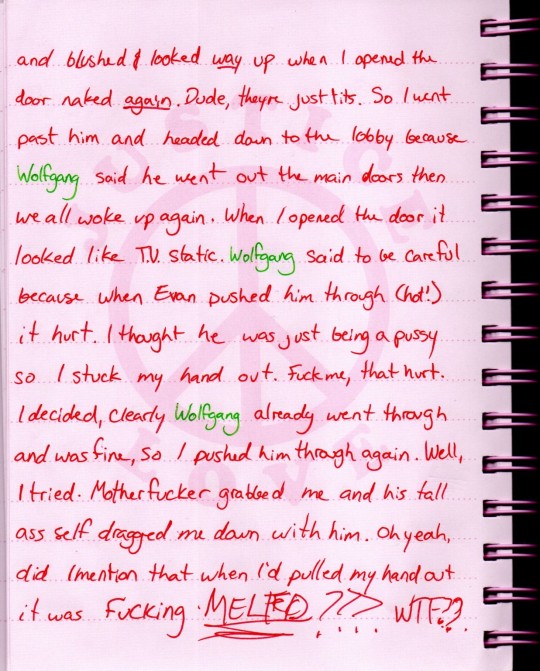 and blushed & looked way up when I opened the
door naked again. Dude, theyre just tits. So I went
past him and headed down to the lobby because
Wolfgang said he went out the main doors then
we all woke up again. When I opened the door it
looked like T.V. static. Wolfgang said to be careful
because when Evan pushed him through (hot!)
it hurt. I thought he was just being a pussy
so I stuck my hand out. Fuck me, that hurt.
I decided, clearly Wolfgang already went through
and was fine, so I pushed him through again. Well,
I tried. Motherfucker grabbed me and his tall
ass self dragged me down with him. Oh yeah,
did I mention that when I'd pulled my hand out
it was Fucking MELTED??? WTF??
JUSTICE
LOVE